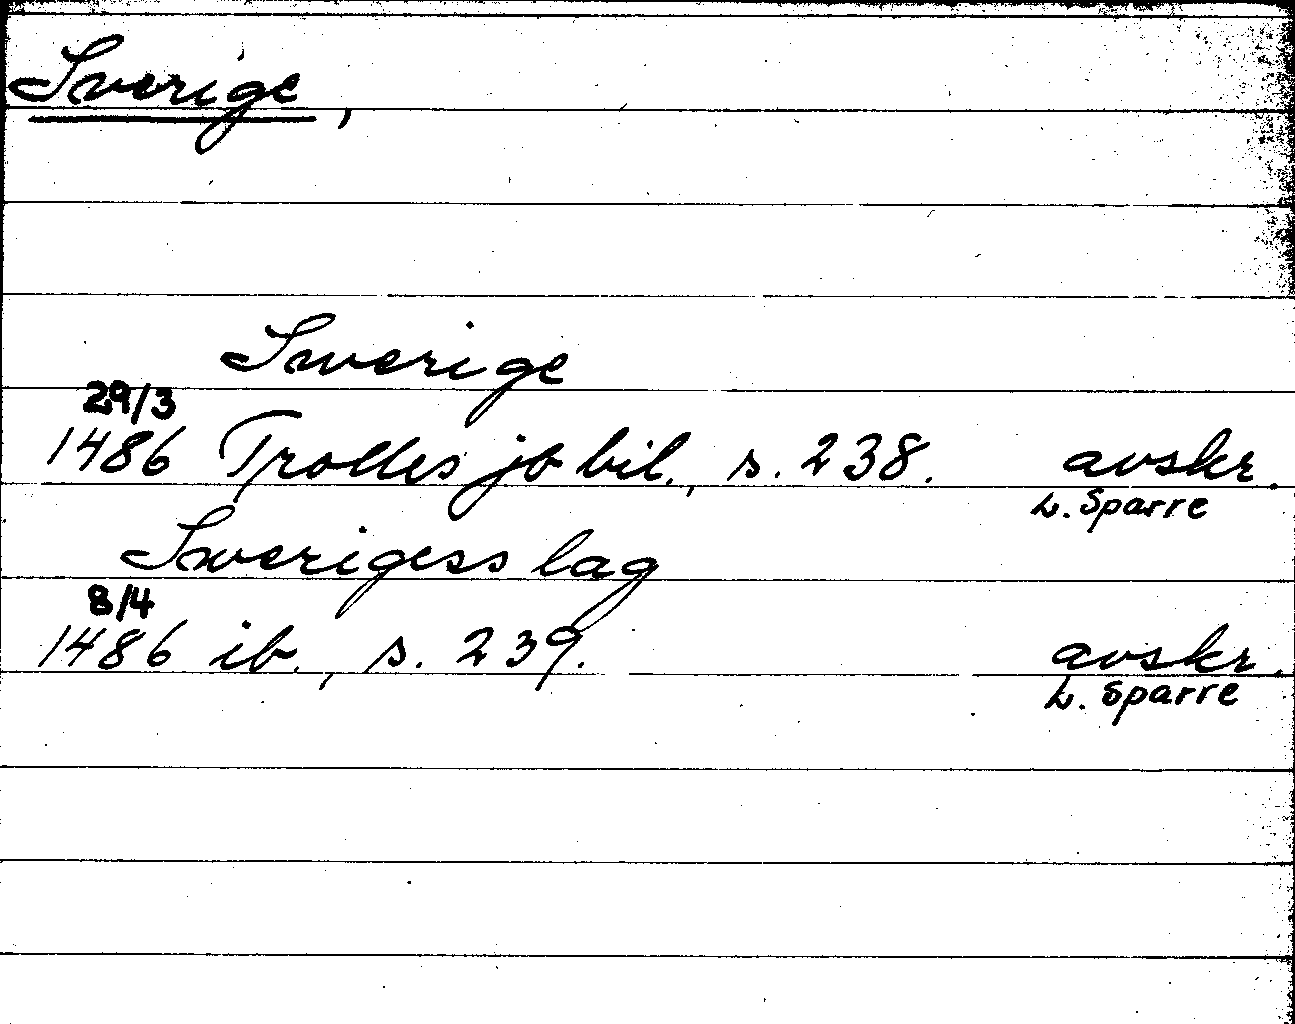 Sverige,
Swerige
29/3
1486 Trolles jb bil., s. 238. avskr.
L. Sparre
Swerigess lag
8/4
1486 ib., s. 239. avskr.
L. Sparre